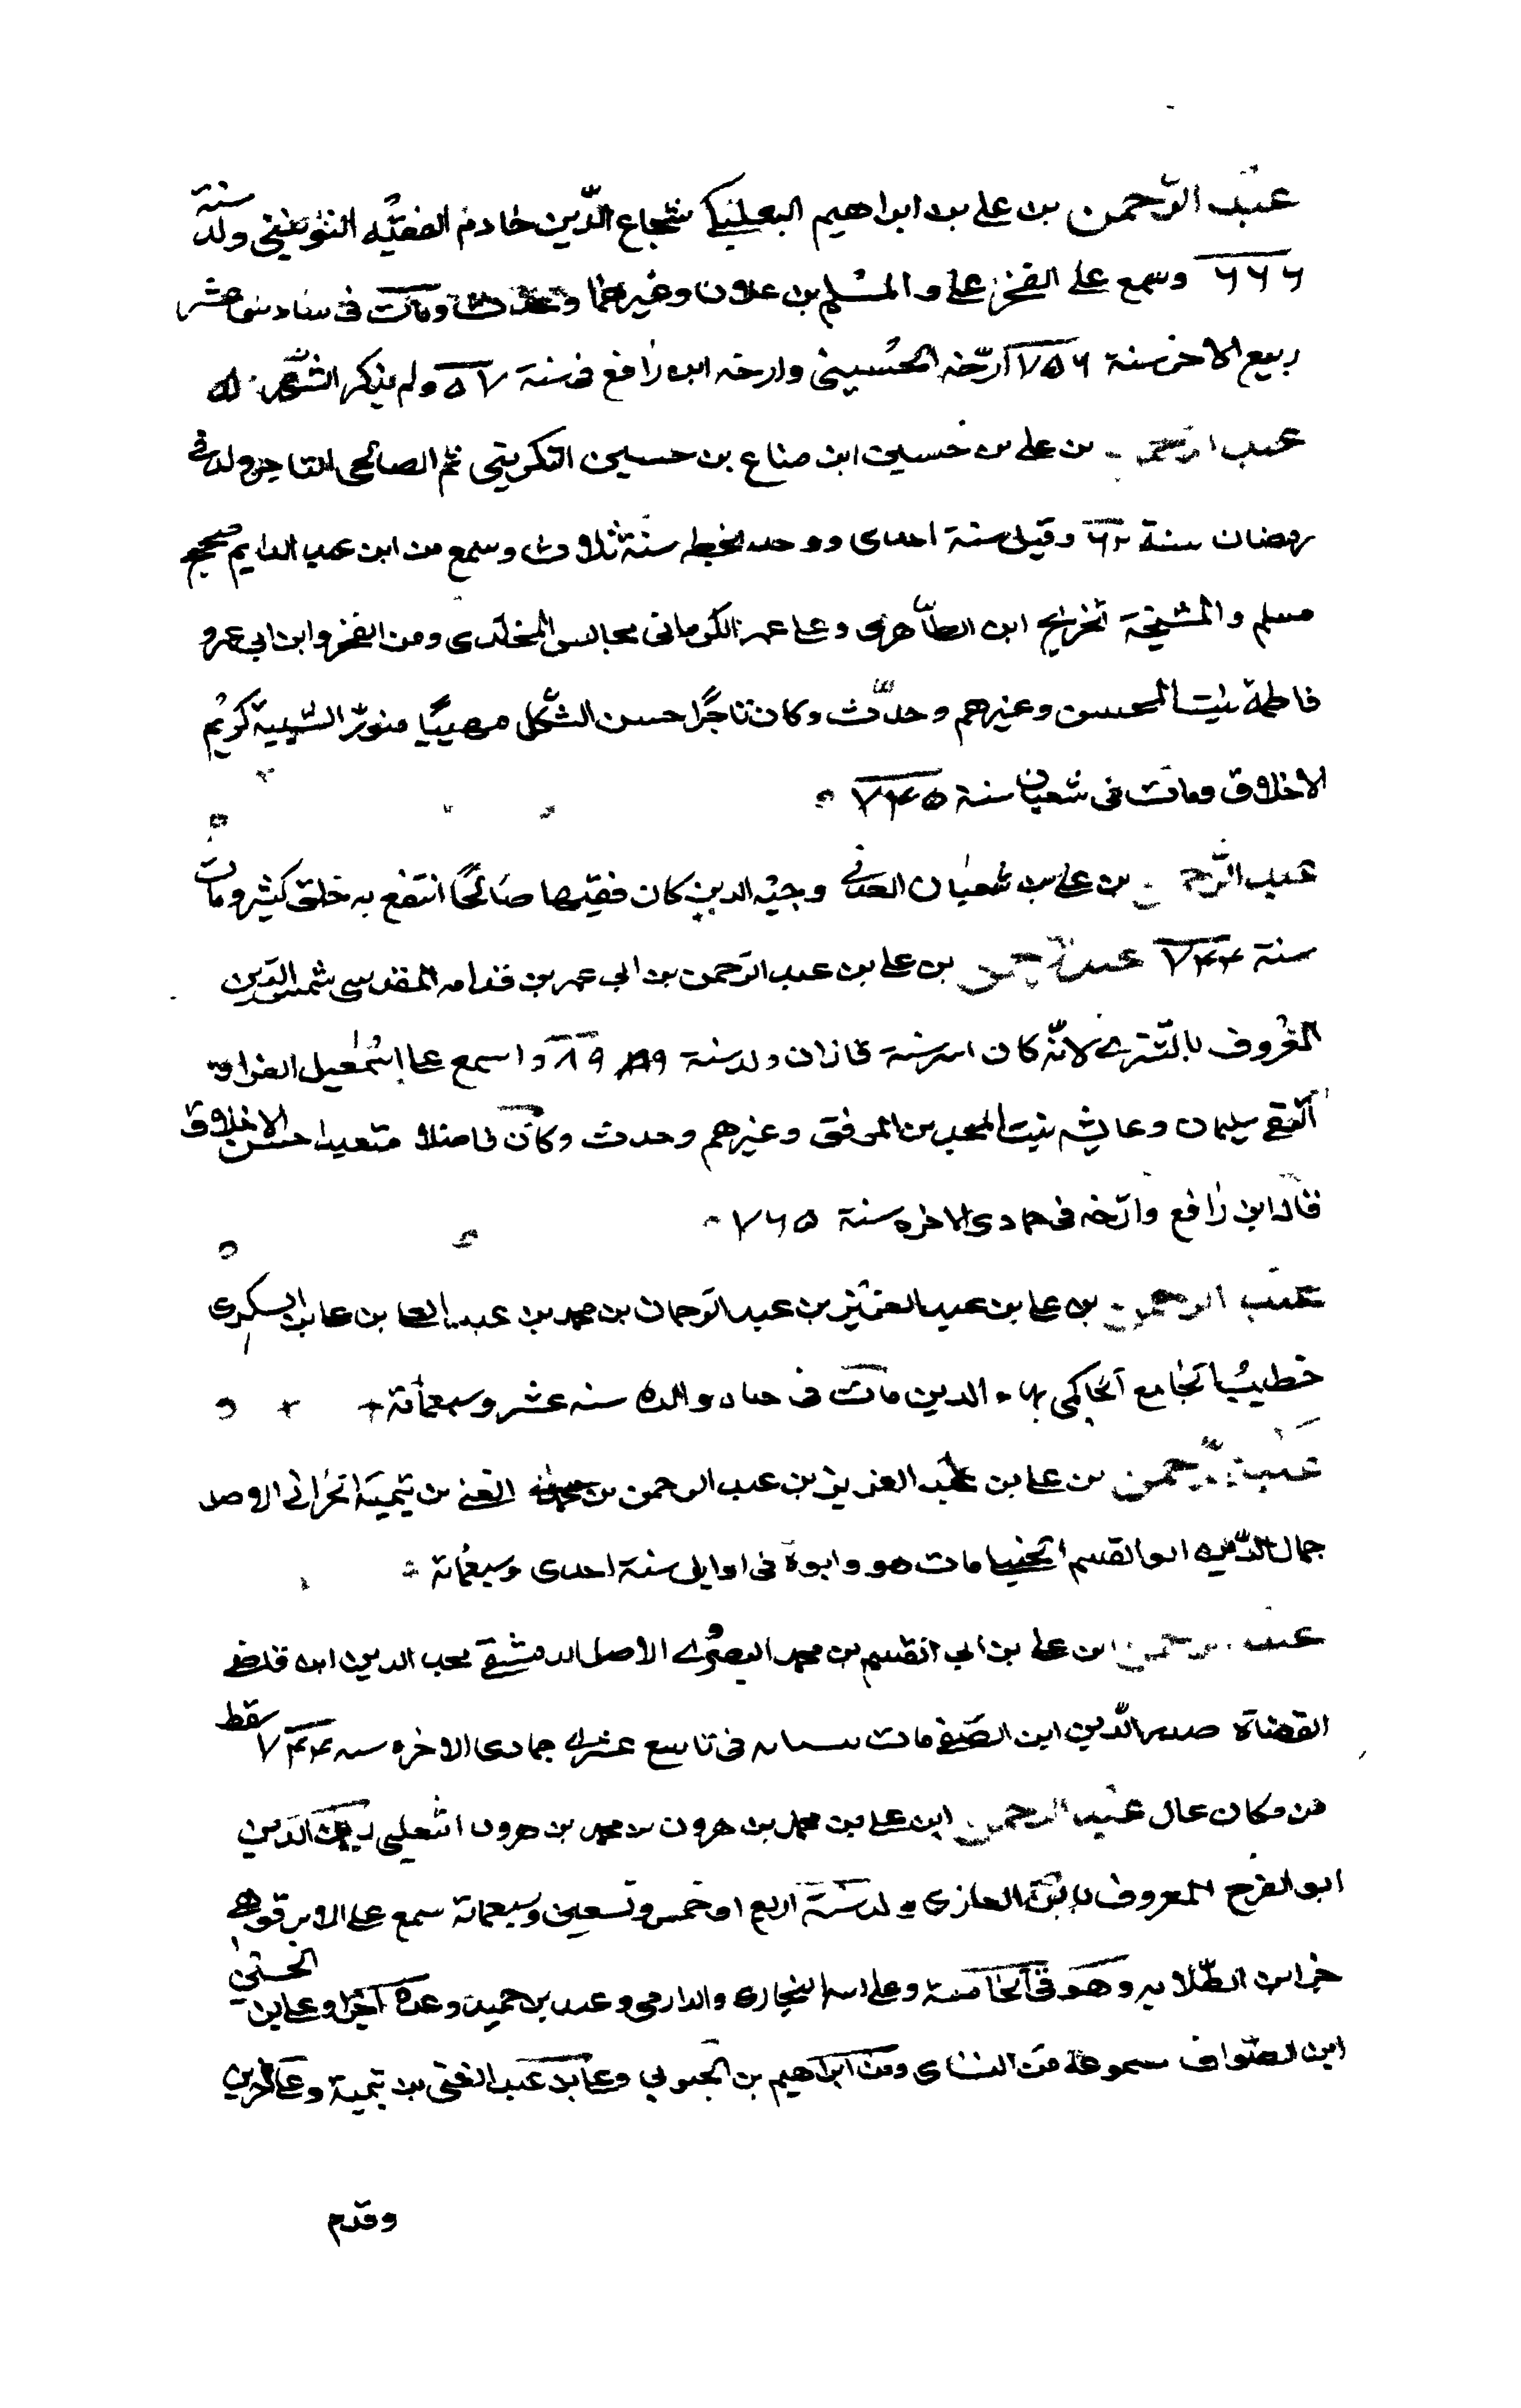 عبد الرحمن بن علي بن ابراهيم البعلبكي شجاع الدّين خادم الفقيه اليونيني ولد سنة
٦٦٦ وسمع على الفخر علي والمسلم بن علان وغيرهما وحدث ومات في سادس عشر
ربيع الاخر سنة ٧٥٦ ارّخه الحُسيني وارخه ابن رافع في سنة ٥٧ ولم يذكر الشهر
عبد الرحمن بن علي بن حسين ابن مناع بن حسين التكريتي ثم الصالحي التاجر ولد في
رمضان سنة ٦٢ وقيل سنة احدى ووجد بخطه سنة ثلاث وسمع من ابن عبد الدايم صحيح
مسلم والمشيخة تخريج ابن الظّاهري وعلى عمر الكرماني مجالس المخلدي ومن الفخر وابن ابي عمرو
فاطمة بنت المحسن وغيرهم وحدّث وكان تاجرًا حسن الشّكل مهيبًا منوّر الشيبة كريم
الاخلاق ومات في شعبان سنة ٧٤٥
عبد الرّحمن بن علي بن شعبان العدني وجيه الدين كان فقيها صالحًا انتفع به خلق كثير ومات
سنة ٧٤٤ عبد الرحمن بن علي بن عبد الرّحمن بن ابي عمر بن قدامه المقدسي شمس الدّين
المعروف بالتّتري لانّه كان اسر سنة قازان ولد سنة ٦٨٩ واسمع على اسمعيل الفراء
التقي سليمان وعايشه بنت المجد بن الموفق وغيرهم وحدث وكان فاضلا متعبدا حسن الاخلاق
قاله ابن رافع وارّخه في جمادى الاخره سنة ٧٦٥
عبد الرحمن بن علي بن عبد العزيز بن عبد الرّحمان بن محمد بن عبد العلي بن علي السكري
خطيب الجامع الحاكمي بهاء الدين مات في حياة والده سنه عشر وسبعمائة
عبد الرّحمن بن علي بن عبد العزيز بن عبد الرحمن بن عبد الغني بن تيمية الحراني الاصل
جمال الدّين ابو القسم الحنبلي مات هو وابوه في اوايل سنة احدى وسبعمائة
عبد الرحمن ابن علي بن ابي القسم بن محمد البصروي الاصل الدمشقي محب الدين ابن قاضي
القضاة صدر الدّين ابن الصّفي مات في تاسع عشري جمادى الاخره سنه ٧٤٤ سقط
من مكان عال عبد الرحمن ابن علي بن محمد بن هرون بن محمد بن هرون الثعلبي زين الدين
ابو الفرح المعروف بابن القاري ولد سنة اربع او خمس وتسعين وسبعمائة سمع على الابرقوهي
جزء ابن الطّلاية وهو في الخامسة وعلى البخاري والدارمي وعبد بن حميد وعدة اجزا وعلى بن الحسن
ابن الصّواف مسموعه من النساى ومن ابراهيم بن الحبوبي وعلى عبد الغني بن تيمية وعلي اخرين
وقدم